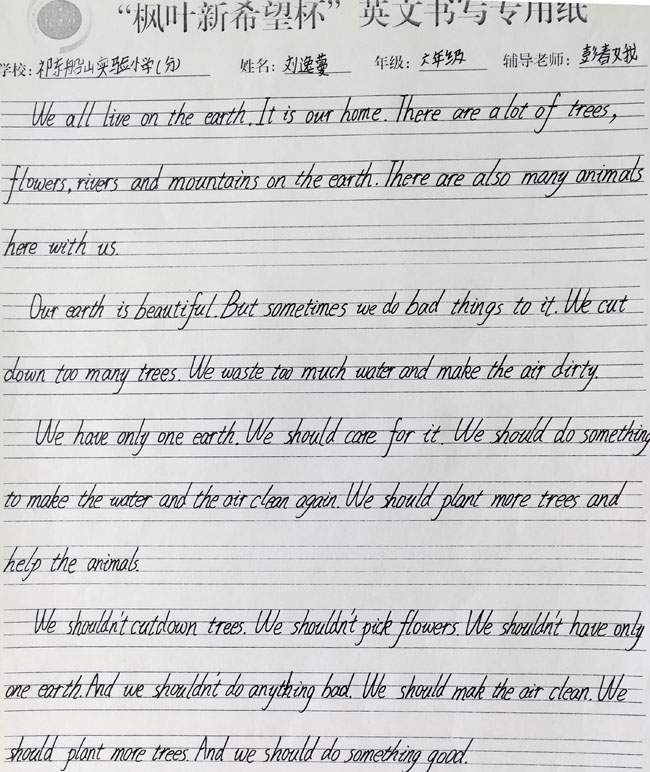 “枫叶新希望杯”英文书写专用纸
学校:祁东船山实验小学(分) 姓名:刘逸蔓 年级:六年级 辅导老师:彭春
We all live on the earth. It is our home. There are a lot of trees,
flowers, rivers and mountains on the earth. There are also many animals
here with us.
Our earth is beautiful. But sometimes we do bad things to it. We cut
down too many trees. We waste too much water and make the air dirty.
We have only one earth. We should care for it. We should do something
to make the water and the air clean again. We should plant more trees and
help the animals.
We shouldn't cutdown trees. We shouldn't pick flowers. We shouldn't have only
one earth. And we shouldn't do anything bad. We should mak the air clean. We
should plant more trees. And we should do something good.